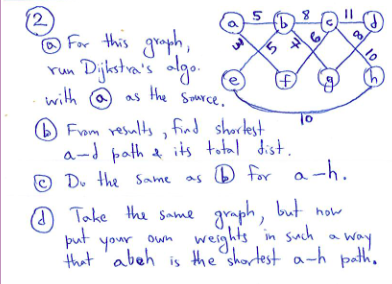 ②
a 5 b 8 c 11 d
3 5 7 6 8 10
e f g h
10
ⓐ For this graph,
run Dijkstra's algo.
with ⓐ as the source.
ⓑ From results, find shortest
a-d path & its total dist.
ⓒ Do the same as ⓑ for a-h.
ⓓ Take the same graph, but now
put your own weights in such a way
that abeh is the shortest a-h path.